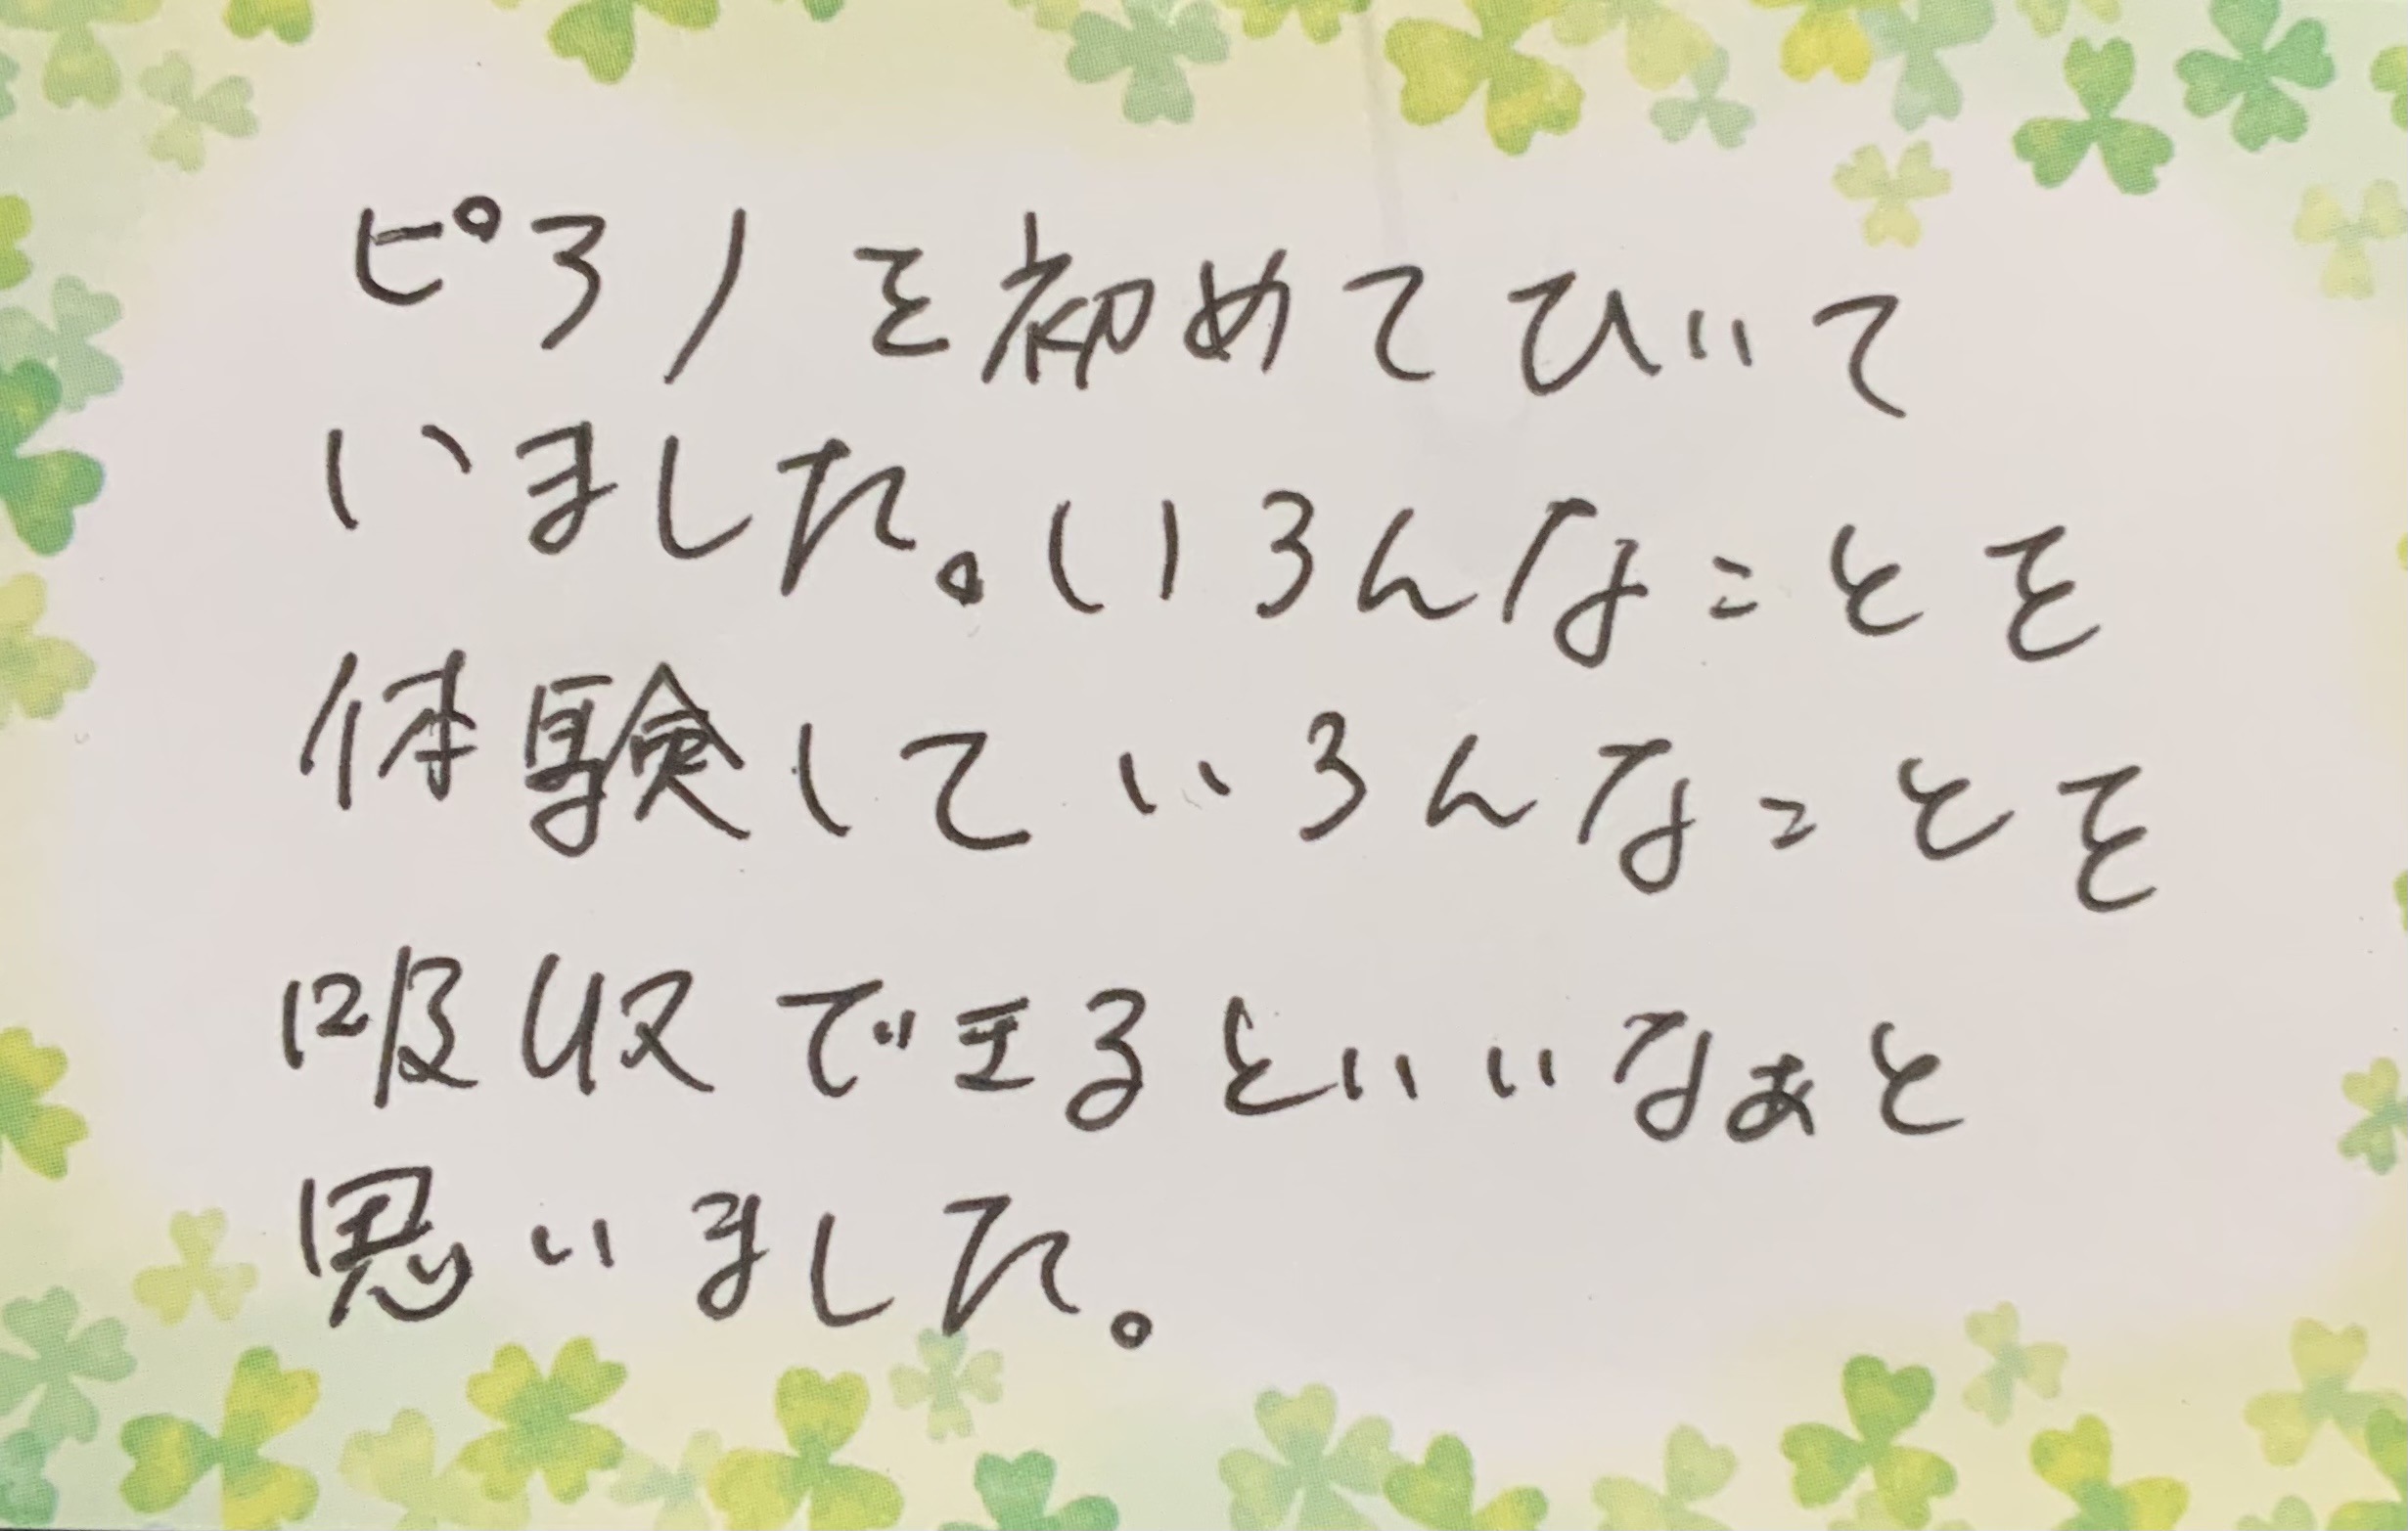 ピアノを初めてひいて
いました。いろんなことを
体験していろんなことを
吸収できるといいなぁと
思いました。